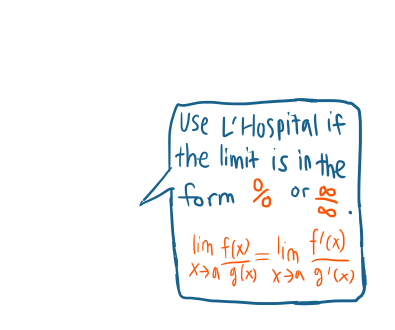 Use L'Hospital if
the limit is in the
form 0/0 or ∞/∞.
lim x→a f(x)/g(x) = lim x→a f'(x)/g'(x)